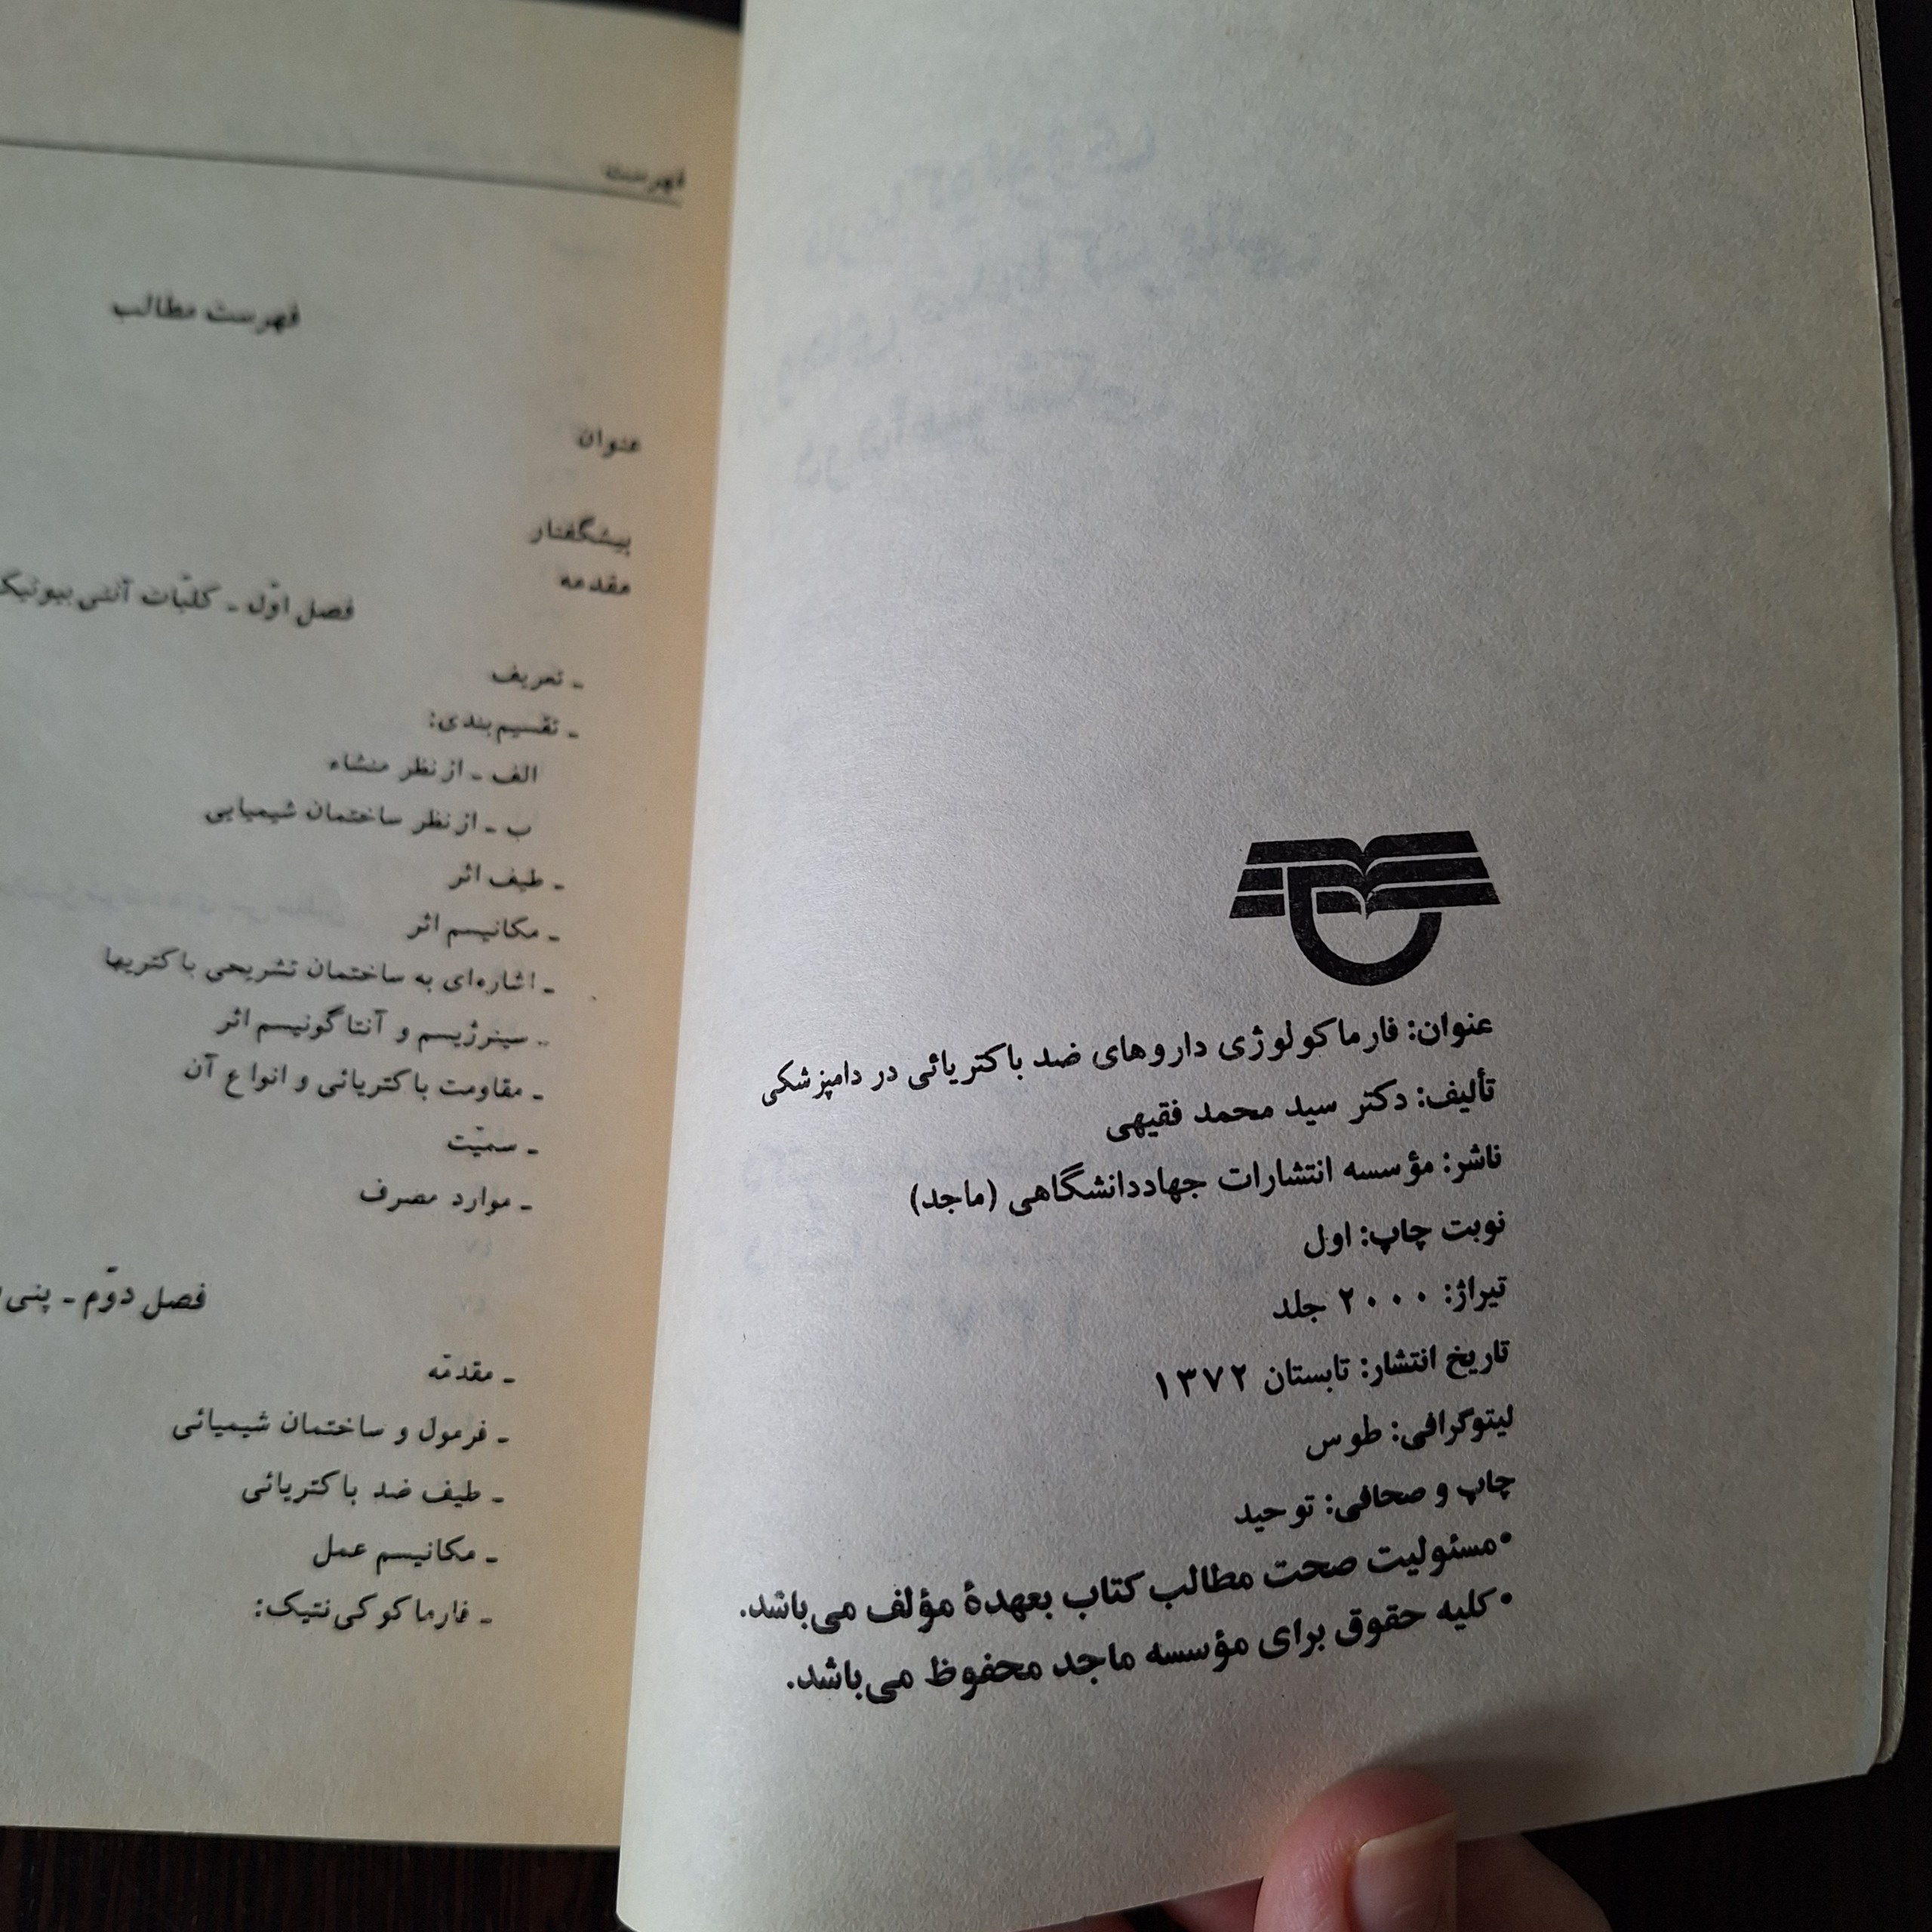 عنوان: فارماکولوژی داروهای ضد باکتریائی در دامپزشکی
تألیف: دکتر سید محمد فقیهی
ناشر: مؤسسه انتشارات جهاددانشگاهی (ماجد)
نوبت چاپ: اول
تیراژ: ۲۰۰۰ جلد
تاریخ انتشار: تابستان ۱۳۷۲
لیتوگرافی: طوس
چاپ و صحافی: توحید
•مسئولیت صحت مطالب کتاب بعهدهٔ مؤلف می‌باشد.
•کلیه حقوق برای مؤسسه ماجد محفوظ می‌باشد.
فهرست
فهرست مطالب
عنوان
پیشگفتار
مقدمه
فصل اوّل ـ کلیّات آنتی بیوتیک
ـ تعریف
ـ تقسیم‌بندی:
الف ـ ازنظر منشاء
ب ـ ازنظر ساختمان شیمیایی
ـ طیف اثر
ـ مکانیسم اثر
ـ اشاره‌ای به ساختمان تشریحی باکتریها
ـ سینرژیسم و آنتاگونیسم اثر
ـ مقاومت باکتریائی و انواع آن
ـ سمیّت
ـ موارد مصرف
فصل دوّم ـ پنی
ـ مقدمّه
ـ فرمول و ساختمان شیمیائی
ـ طیف ضد باکتریائی
ـ مکانیسم عمل
ـ فارماکوکی‌نتیک: